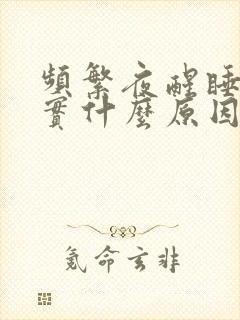 頻繁夜醒睡
實什麼原因
氪命玄非